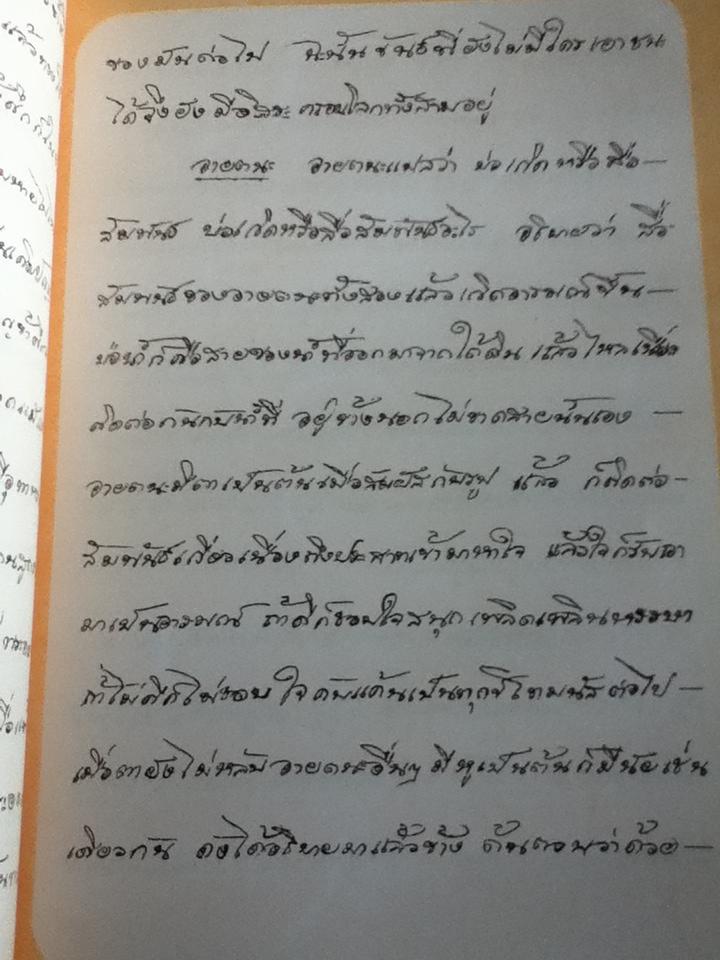 ของมันต่อไป ฉะนั้นขันธ์นี้ยังไม่มีใครเอาชนะ
ได้จึงยังมีอิสระ ครอบโลกทั้งสามอยู่
อายตนะ อายตนะแปลว่า บ่อเกิดหรือสื่อ—
สัมพันธ์ บ่อเกิดหรือสื่อสัมพันธ์อะไร อธิบายว่า สื่อ
สัมพันธ์ของอายตนะทั้งสองแล้วเกิดอารมณ์ขึ้น—
บ่อน้ำก็คือสายของน้ำที่ออกมาจากใต้ดิน แล้วไหลเนื่อง
ติดต่อกันกับน้ำที่ อยู่ข้างนอกไม่ขาดสายนั้นเอง —
อายตนะมีตาเป็นต้นเมื่อสัมผัสกับรูป แล้ว ก็ติดต่อ—
สัมพันธ์เกี่ยวเนื่องถึงประสาทเข้ามาหาใจ แล้วใจก็รับเอา
มาเป็นอารมณ์ ถ้าดีก็ชอบใจสนุกเพลิดเพลินหรรษา
ถ้าไม่ดีก็ไม่ชอบ ใจคับแค้นเป็นทุกข์โทมนัสต่อไป—
เมื่อตายังไม่หลับ อายตนะอื่นๆ มีหูเป็นต้นก็มีนัยเช่น
เดียวกัน ดังได้อธิบายมาแล้วข้าง ต้นตอนว่าด้วย—